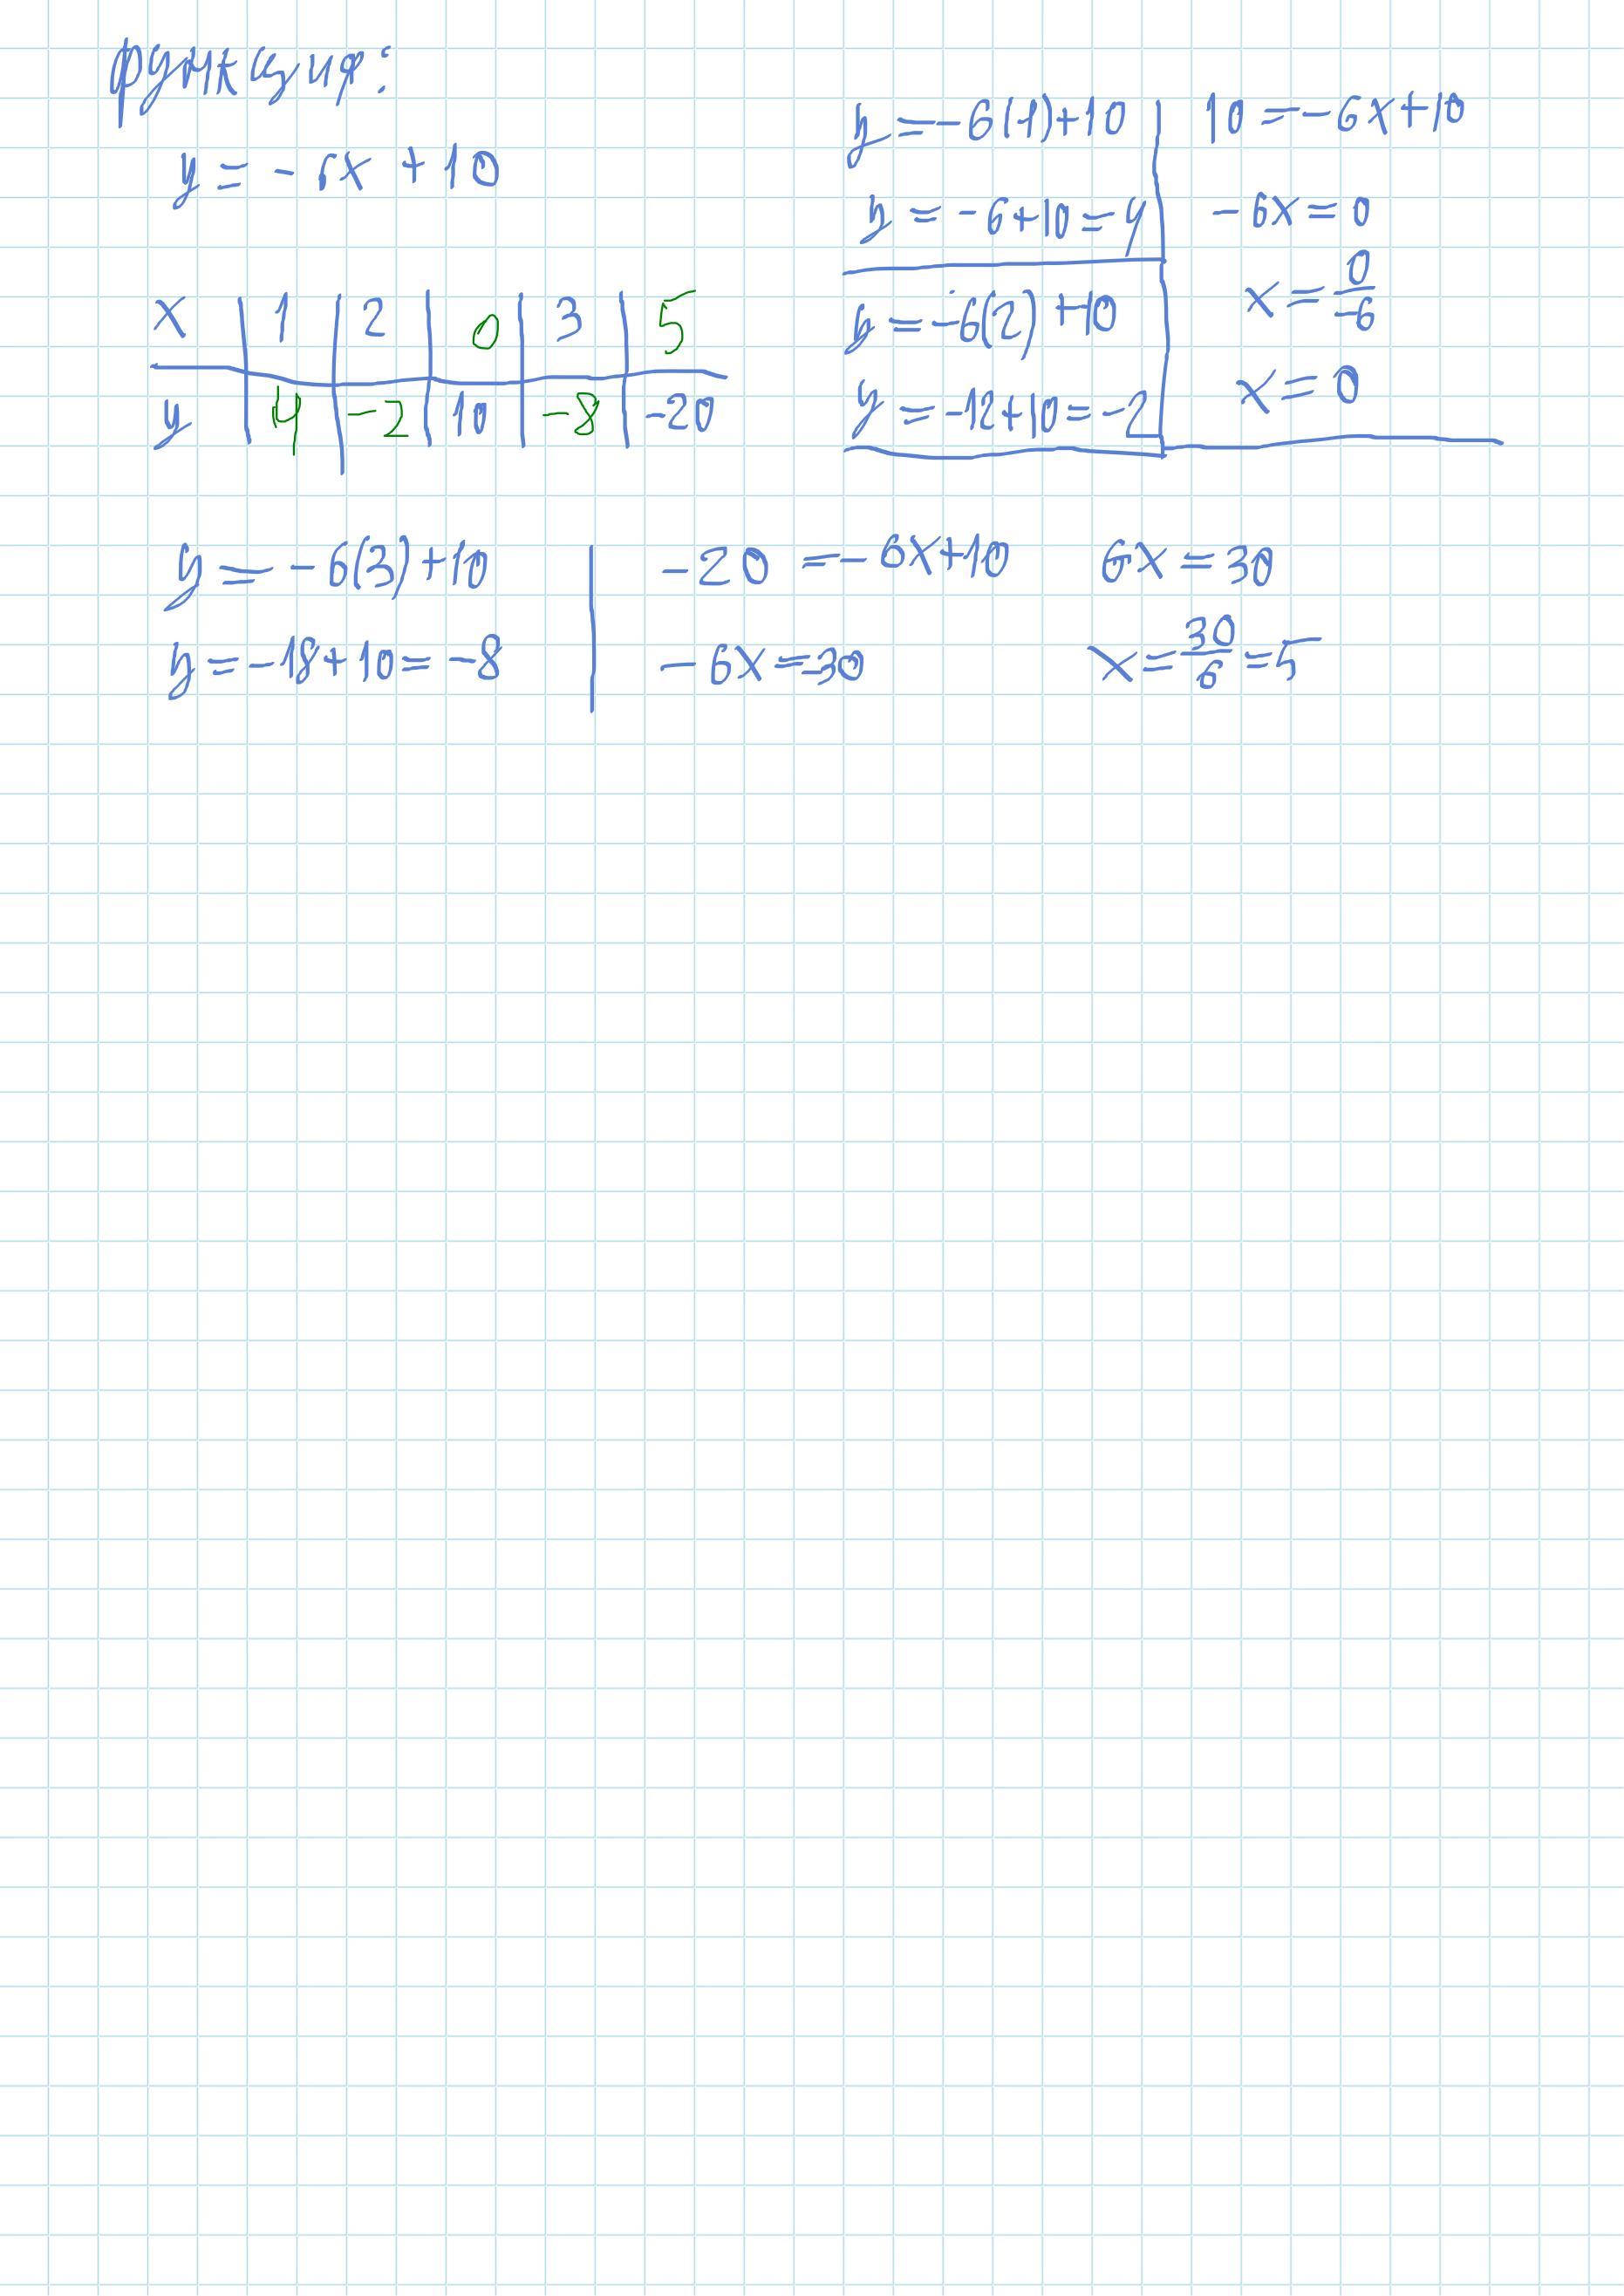 функция:
y = - 6x + 10
x | 1 | 2 | 0 | 3 | 5
y | 4 | -2 | 10 | -8 | -20
y = -6(1)+10
y = -6+10=4
y = -6(2)+10
y = -12+10=-2
10 = -6x+10
-6x=0
x = 0/-6
x = 0
y = -6(3)+10
y = -18+10= -8
-20 = -6x+10
-6x=30
6x=30
x=30/6=5